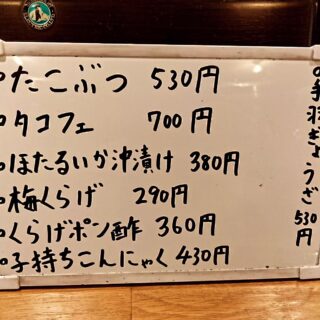 たこぶつ 530円
タコフェ 700円
ほたるいか沖漬け 380円
梅くらげ 290円
くらげポン酢 360円
子持ちこんにゃく 430円
手羽ぎょうざ 530円